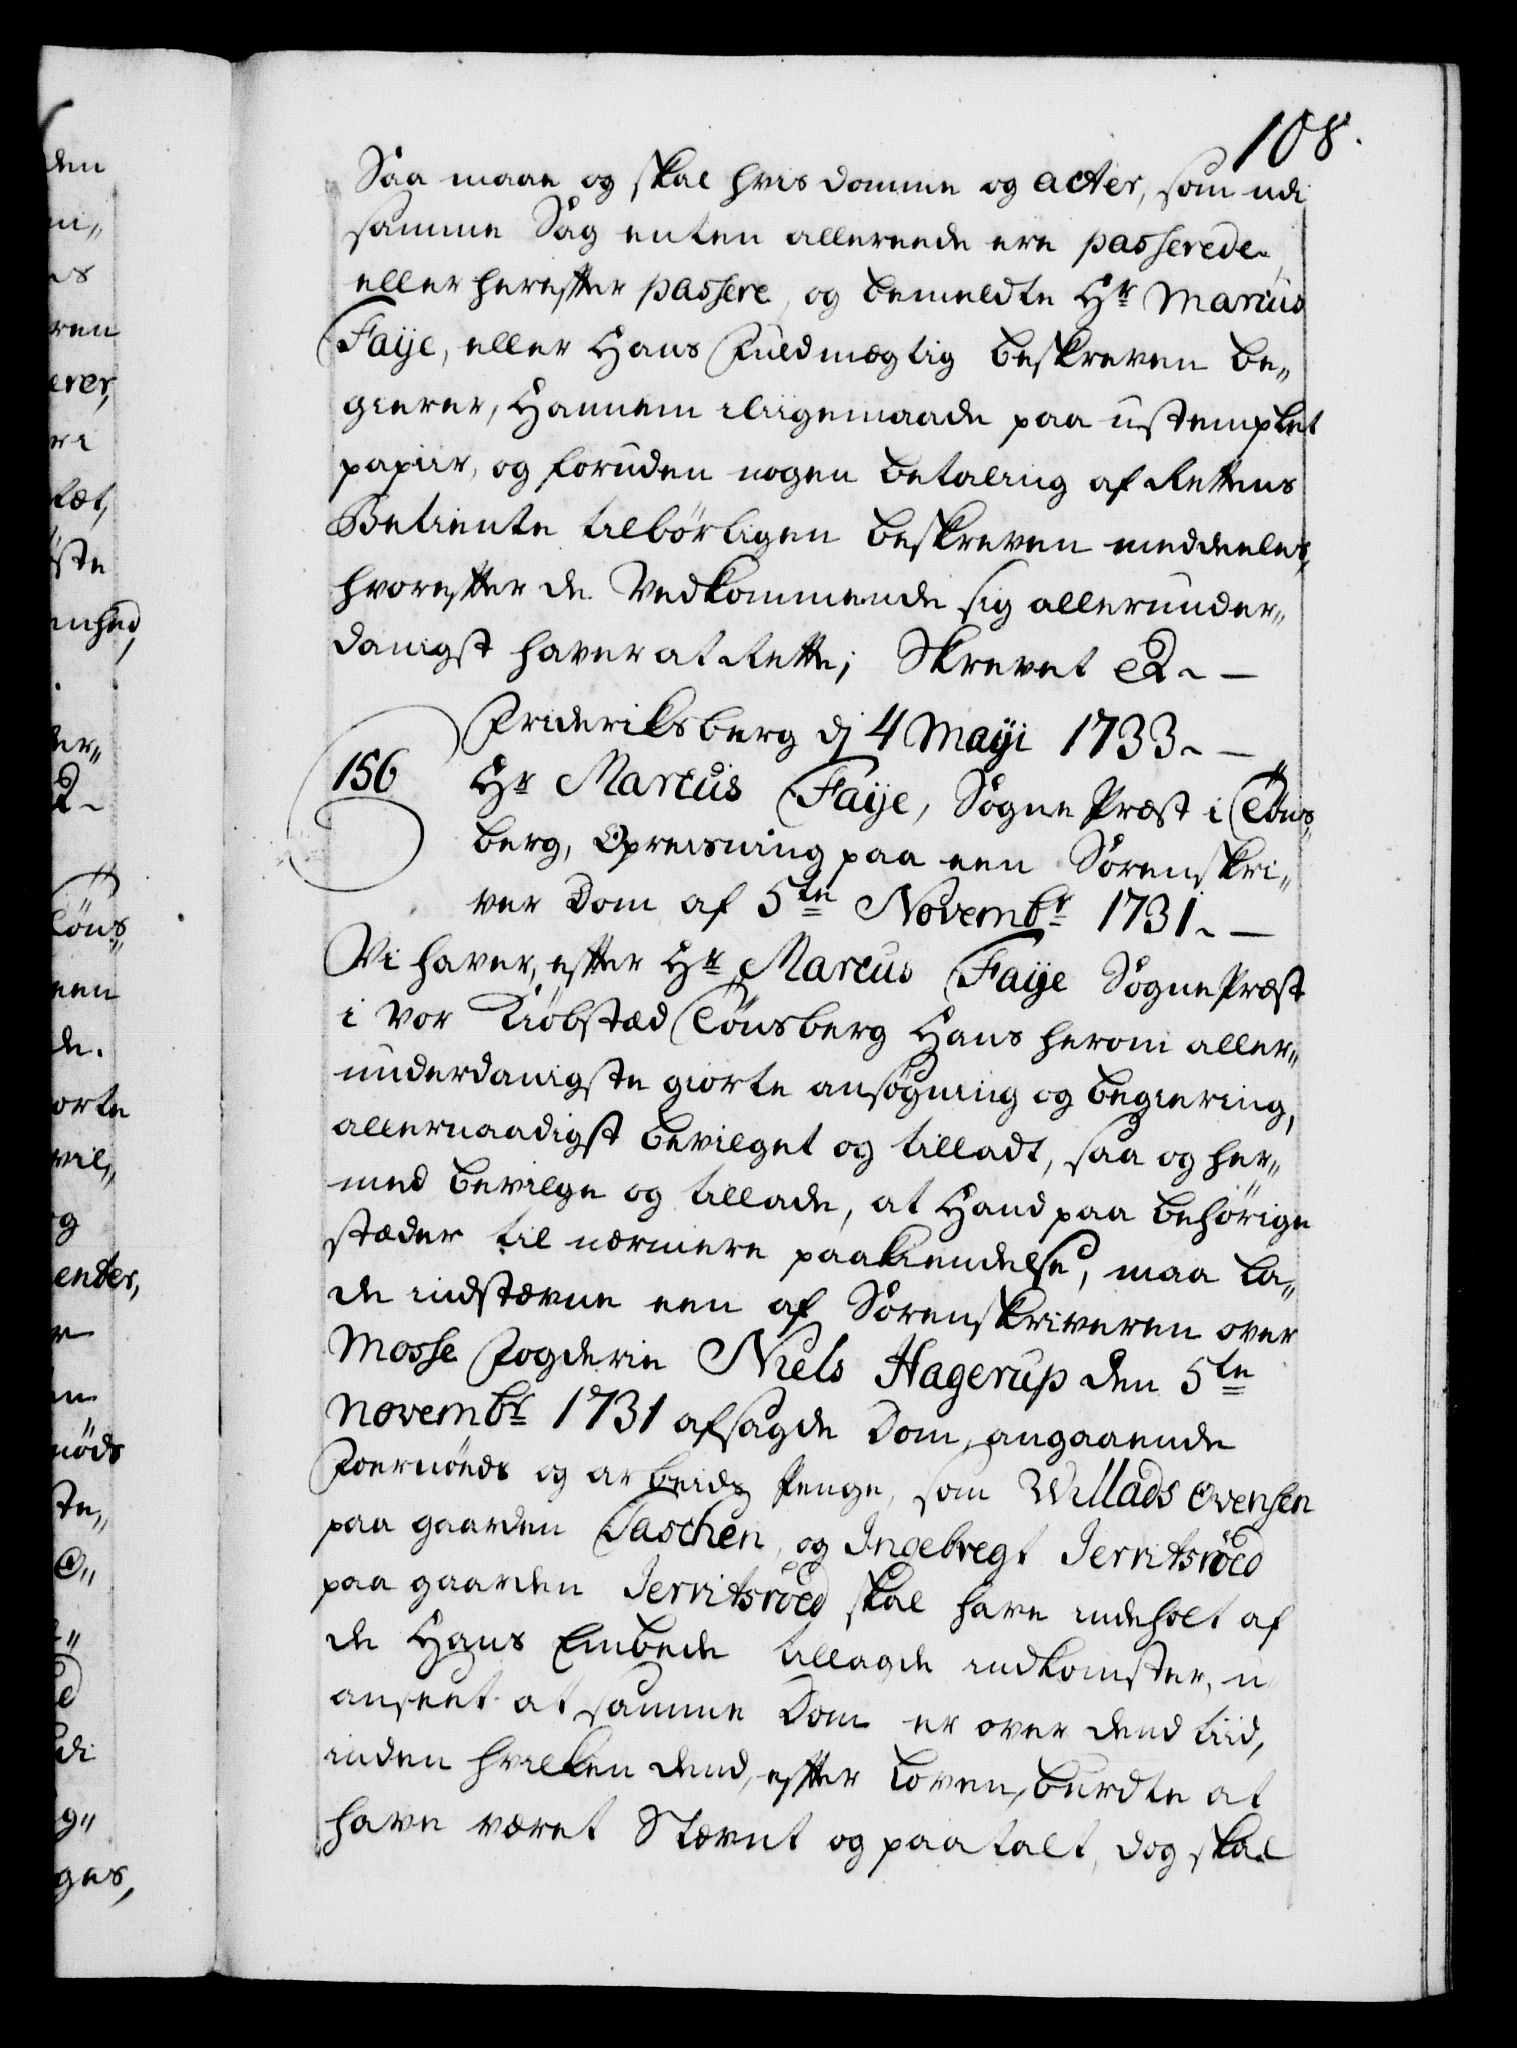 108.
Saa maae og skal hvis domme og acter, som udi
samme Sag enten allereede ere passerede,
eller herefter passere, og bemeldte Hr Marcus
Faije, eller Hans Fuldmægtig beskreven be„
gierer, Hannem iligemaade paa ustemplet
papiir, og foruden nogen betaling af Rettens
Betiente tilbørligen beskreven meddeeles,
hvorefter de Vedkommende sig allerunder„
danigst haver at Rette; Skrevet &.
Frideriksberg dj 4 Maji 1733.
156 Hr Marcus Faije, Sogne Præst i Töns„
berg, Opreisning paa een Sorenskri„
ver Dom af 5te Novembr 1731.
Vi haver, efter Hr Marcus Faije Sogne Præst
i vor Kiøbstæd Tönsberg Hans herom aller„
underdanigste giorte ansøgning og begiering,
allernaadigst bevilget og tilladt, saa og her„
med bevilge og tillade, at Hand paa behørige
stæder til nærmere paakiendelse, maa la„
de indstævne een af Sorenskriveren over
Mosse Fogderie Niels Hagerup den 5te
Novembr 1731 afsagde Dom, angaaende
Foernöeds og arbeids Penge, som Willads Ovensen
paa gaarden Taschen, og Ingebregt Jerritsröed
paa gaarden Jerritsröed skal have indeholt af
de Hans Embede tillagde indkomster, u
anseet at samme Dom er over dend tiid,
inden hvilken dend, efter Loven, burdte at
have været Stævnt og paatalt, dog skal